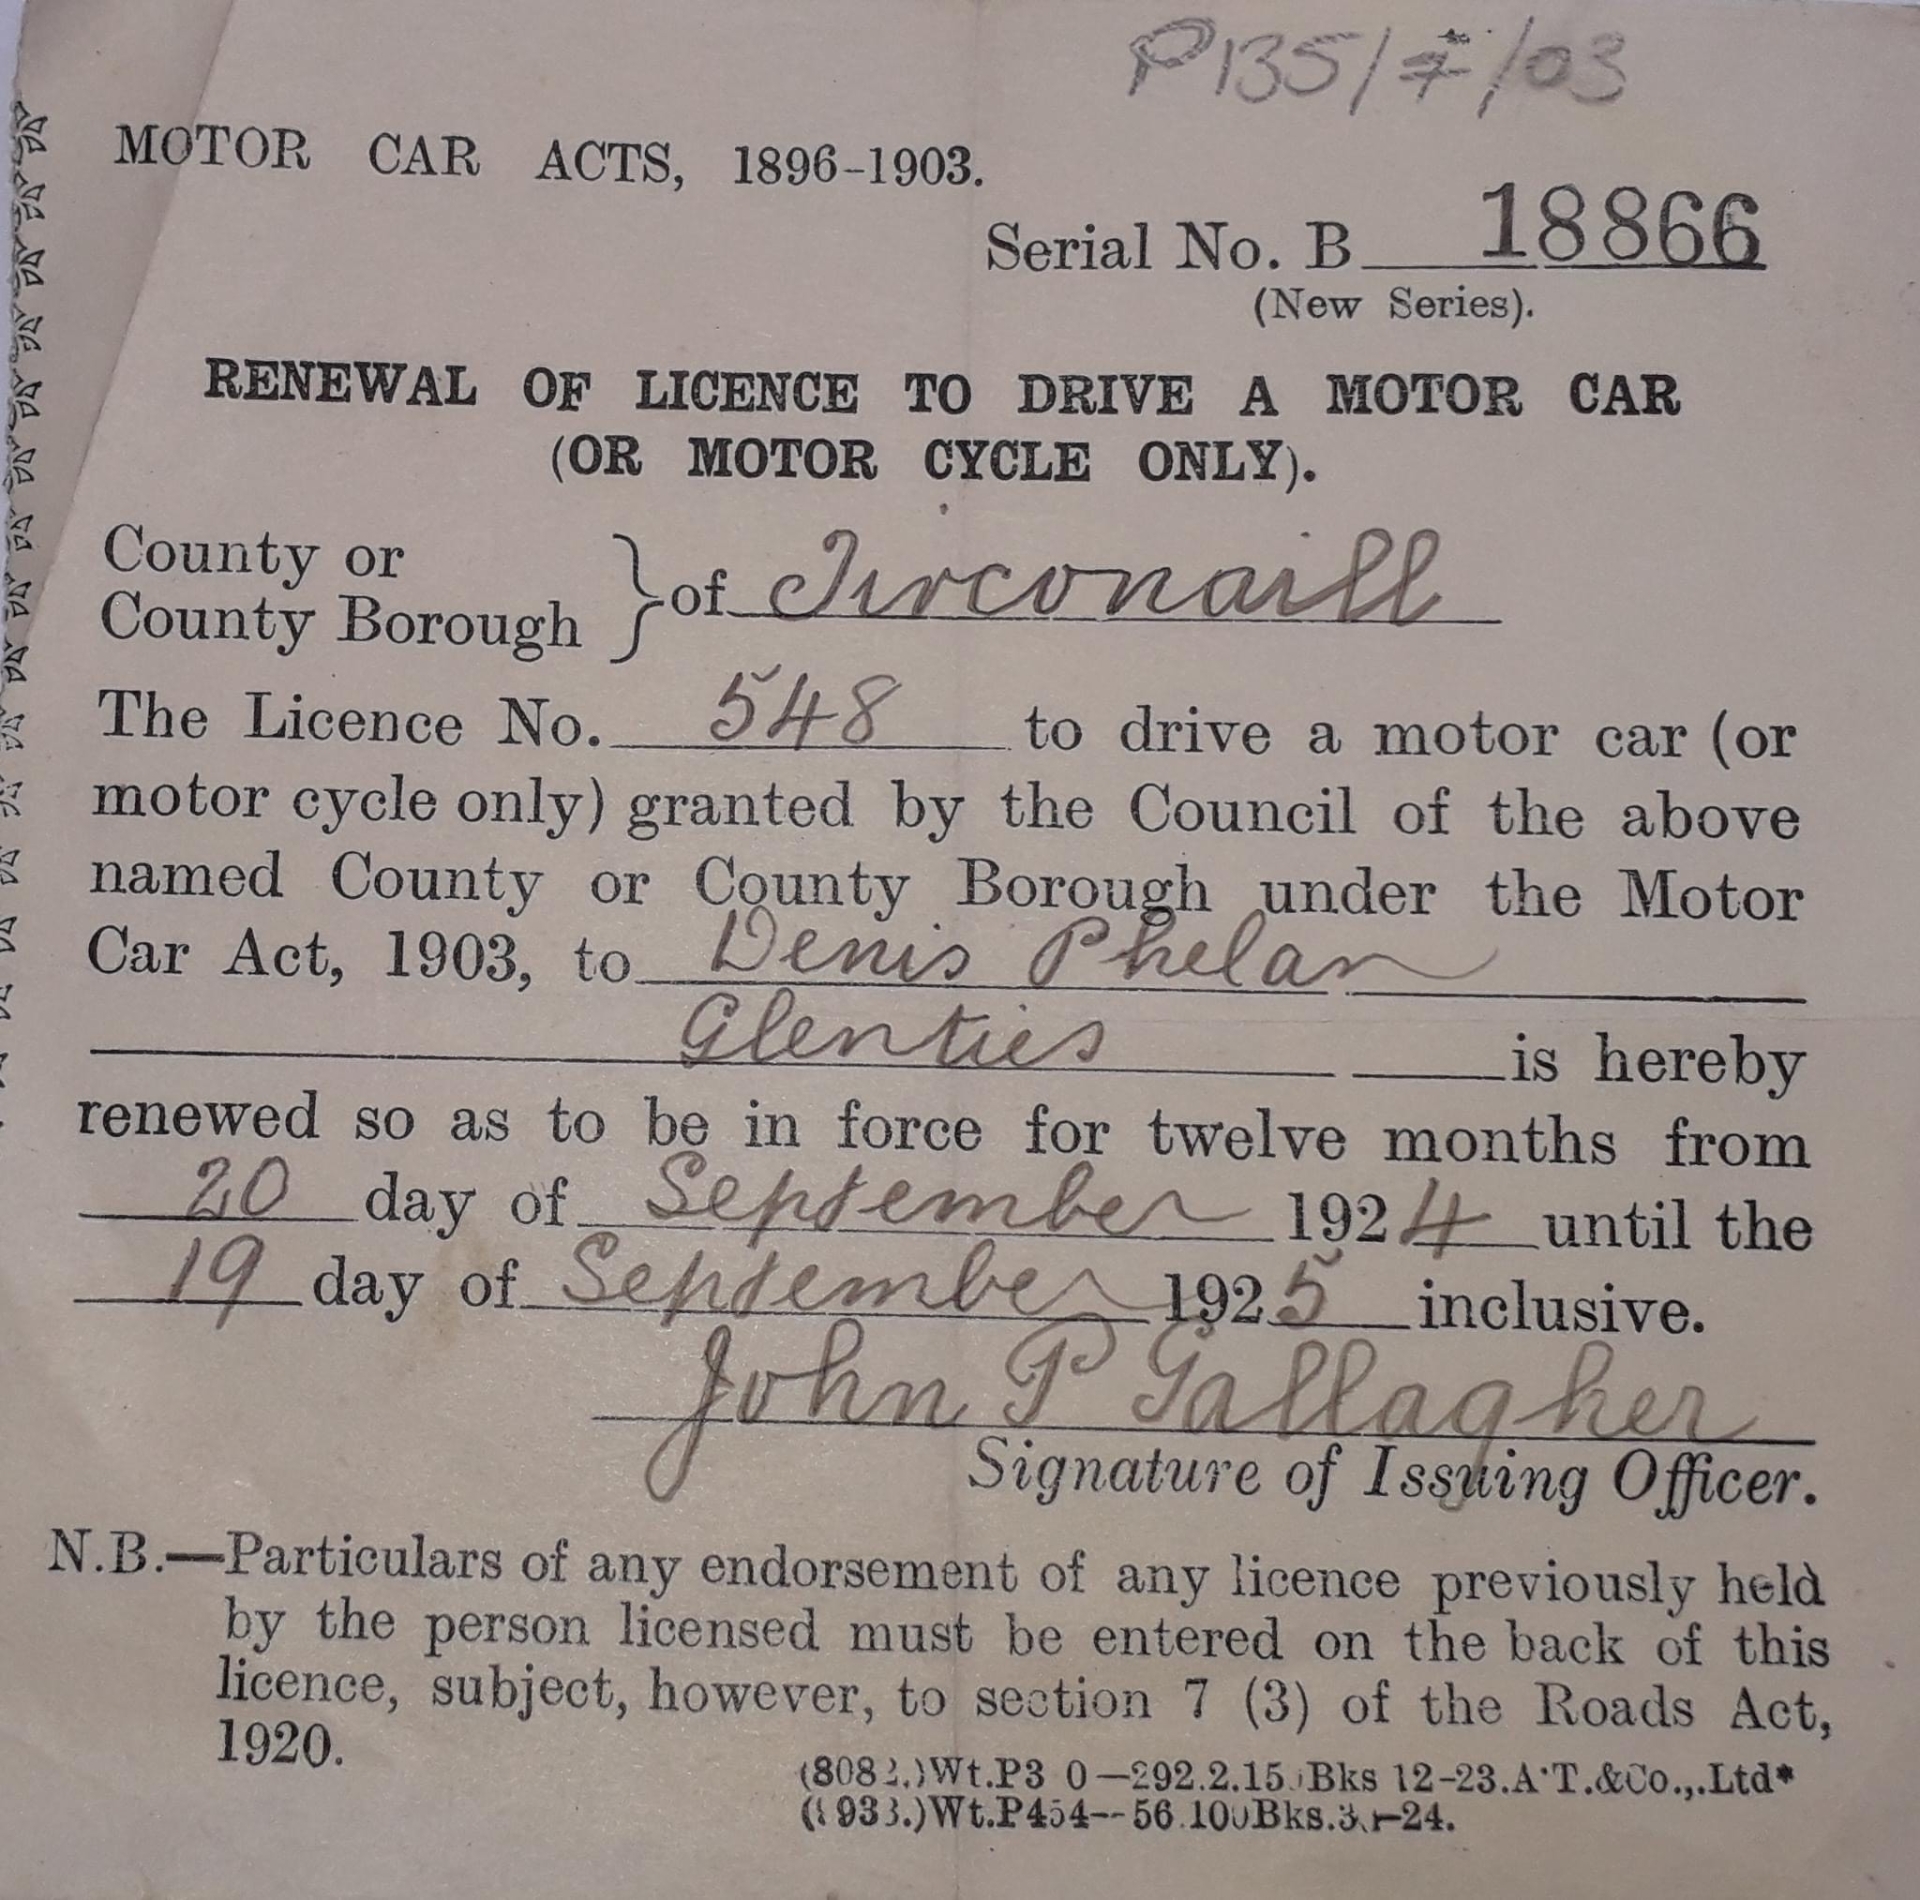 P135/7/03
MOTOR CAR ACTS, 1896-1903.
Serial No. B 18866
(New Series).
RENEWAL OF LICENCE TO DRIVE A MOTOR CAR
(OR MOTOR CYCLE ONLY).
County or
County Borough } of Tirconaill
The Licence No. 548 to drive a motor car (or
motor cycle only) granted by the Council of the above
named County or County Borough under the Motor
Car Act, 1903, to Denis Phelan
Glenties is hereby
renewed so as to be in force for twelve months from
20 day of September 1924 until the
19 day of September 1925 inclusive.
John P Gallagher
Signature of Issuing Officer.
N.B.—Particulars of any endorsement of any licence previously held
by the person licensed must be entered on the back of this
licence, subject, however, to section 7 (3) of the Roads Act,
1920.
Wt.P3 0—292.2.15.Bks 12-23.A.T.&Co.,.Ltd*
Wt.P454--56.100Bks.